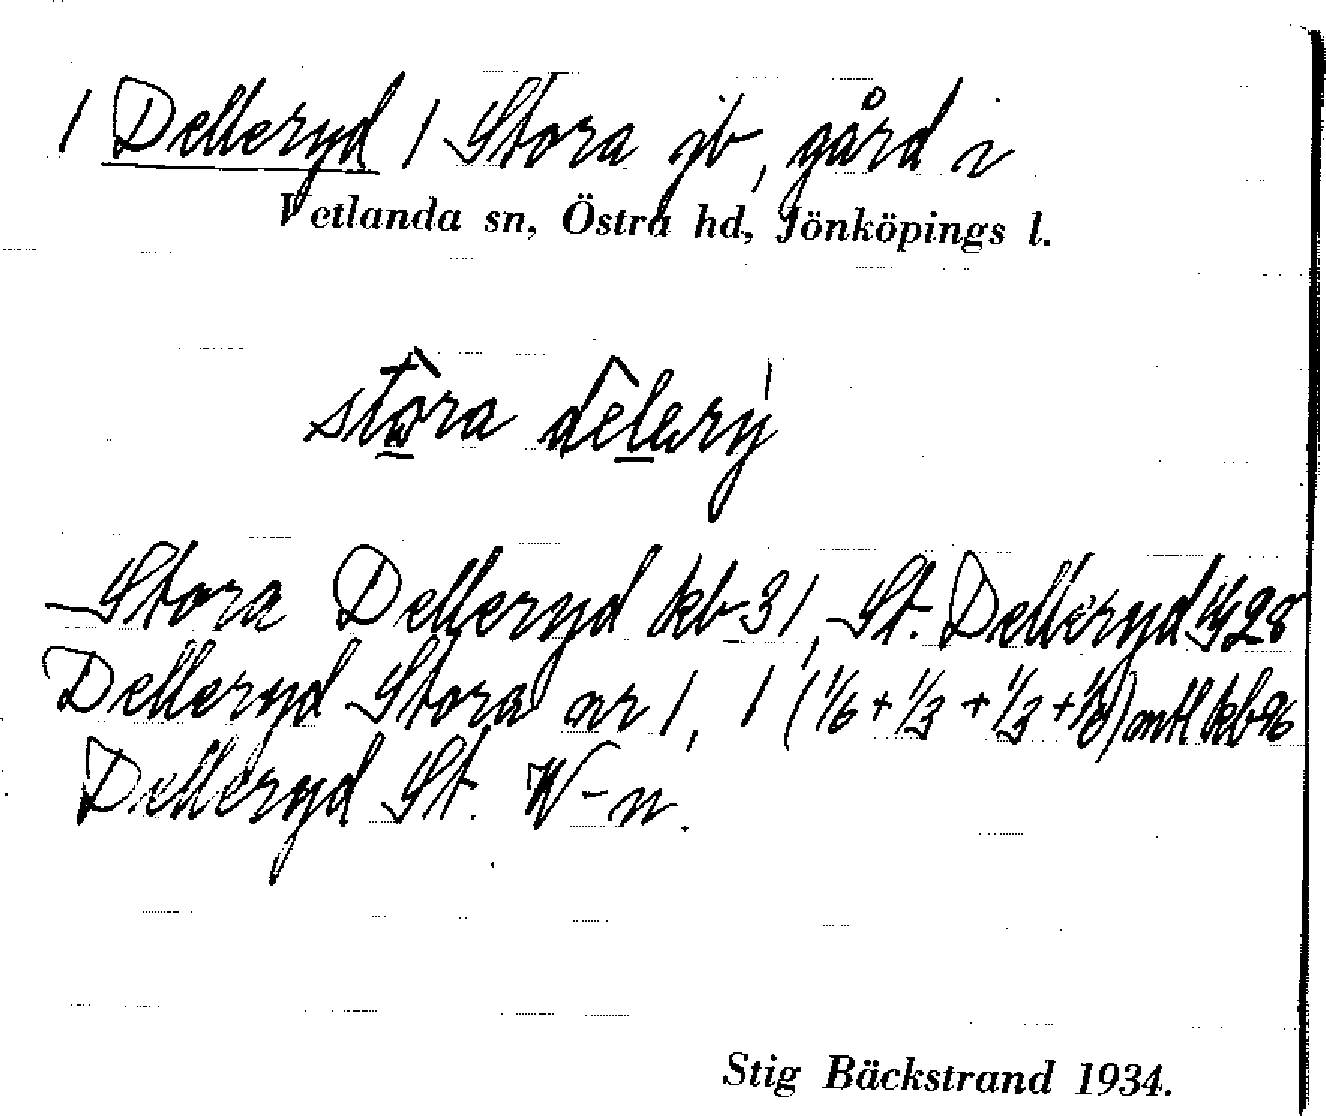 / Delleryd / Stora jb, gård i
Vetlanda sn, Östra hd, Jönköpings l.
stora
Stora Delleryd kb 31, St. Delleryd 28
Delleryd Stora nr 1, 1 (1/6 + 1/3 + 1/3 + 1/6) mtl kb
Delleryd St. W-n.
Stig Bäckstrand 1934.